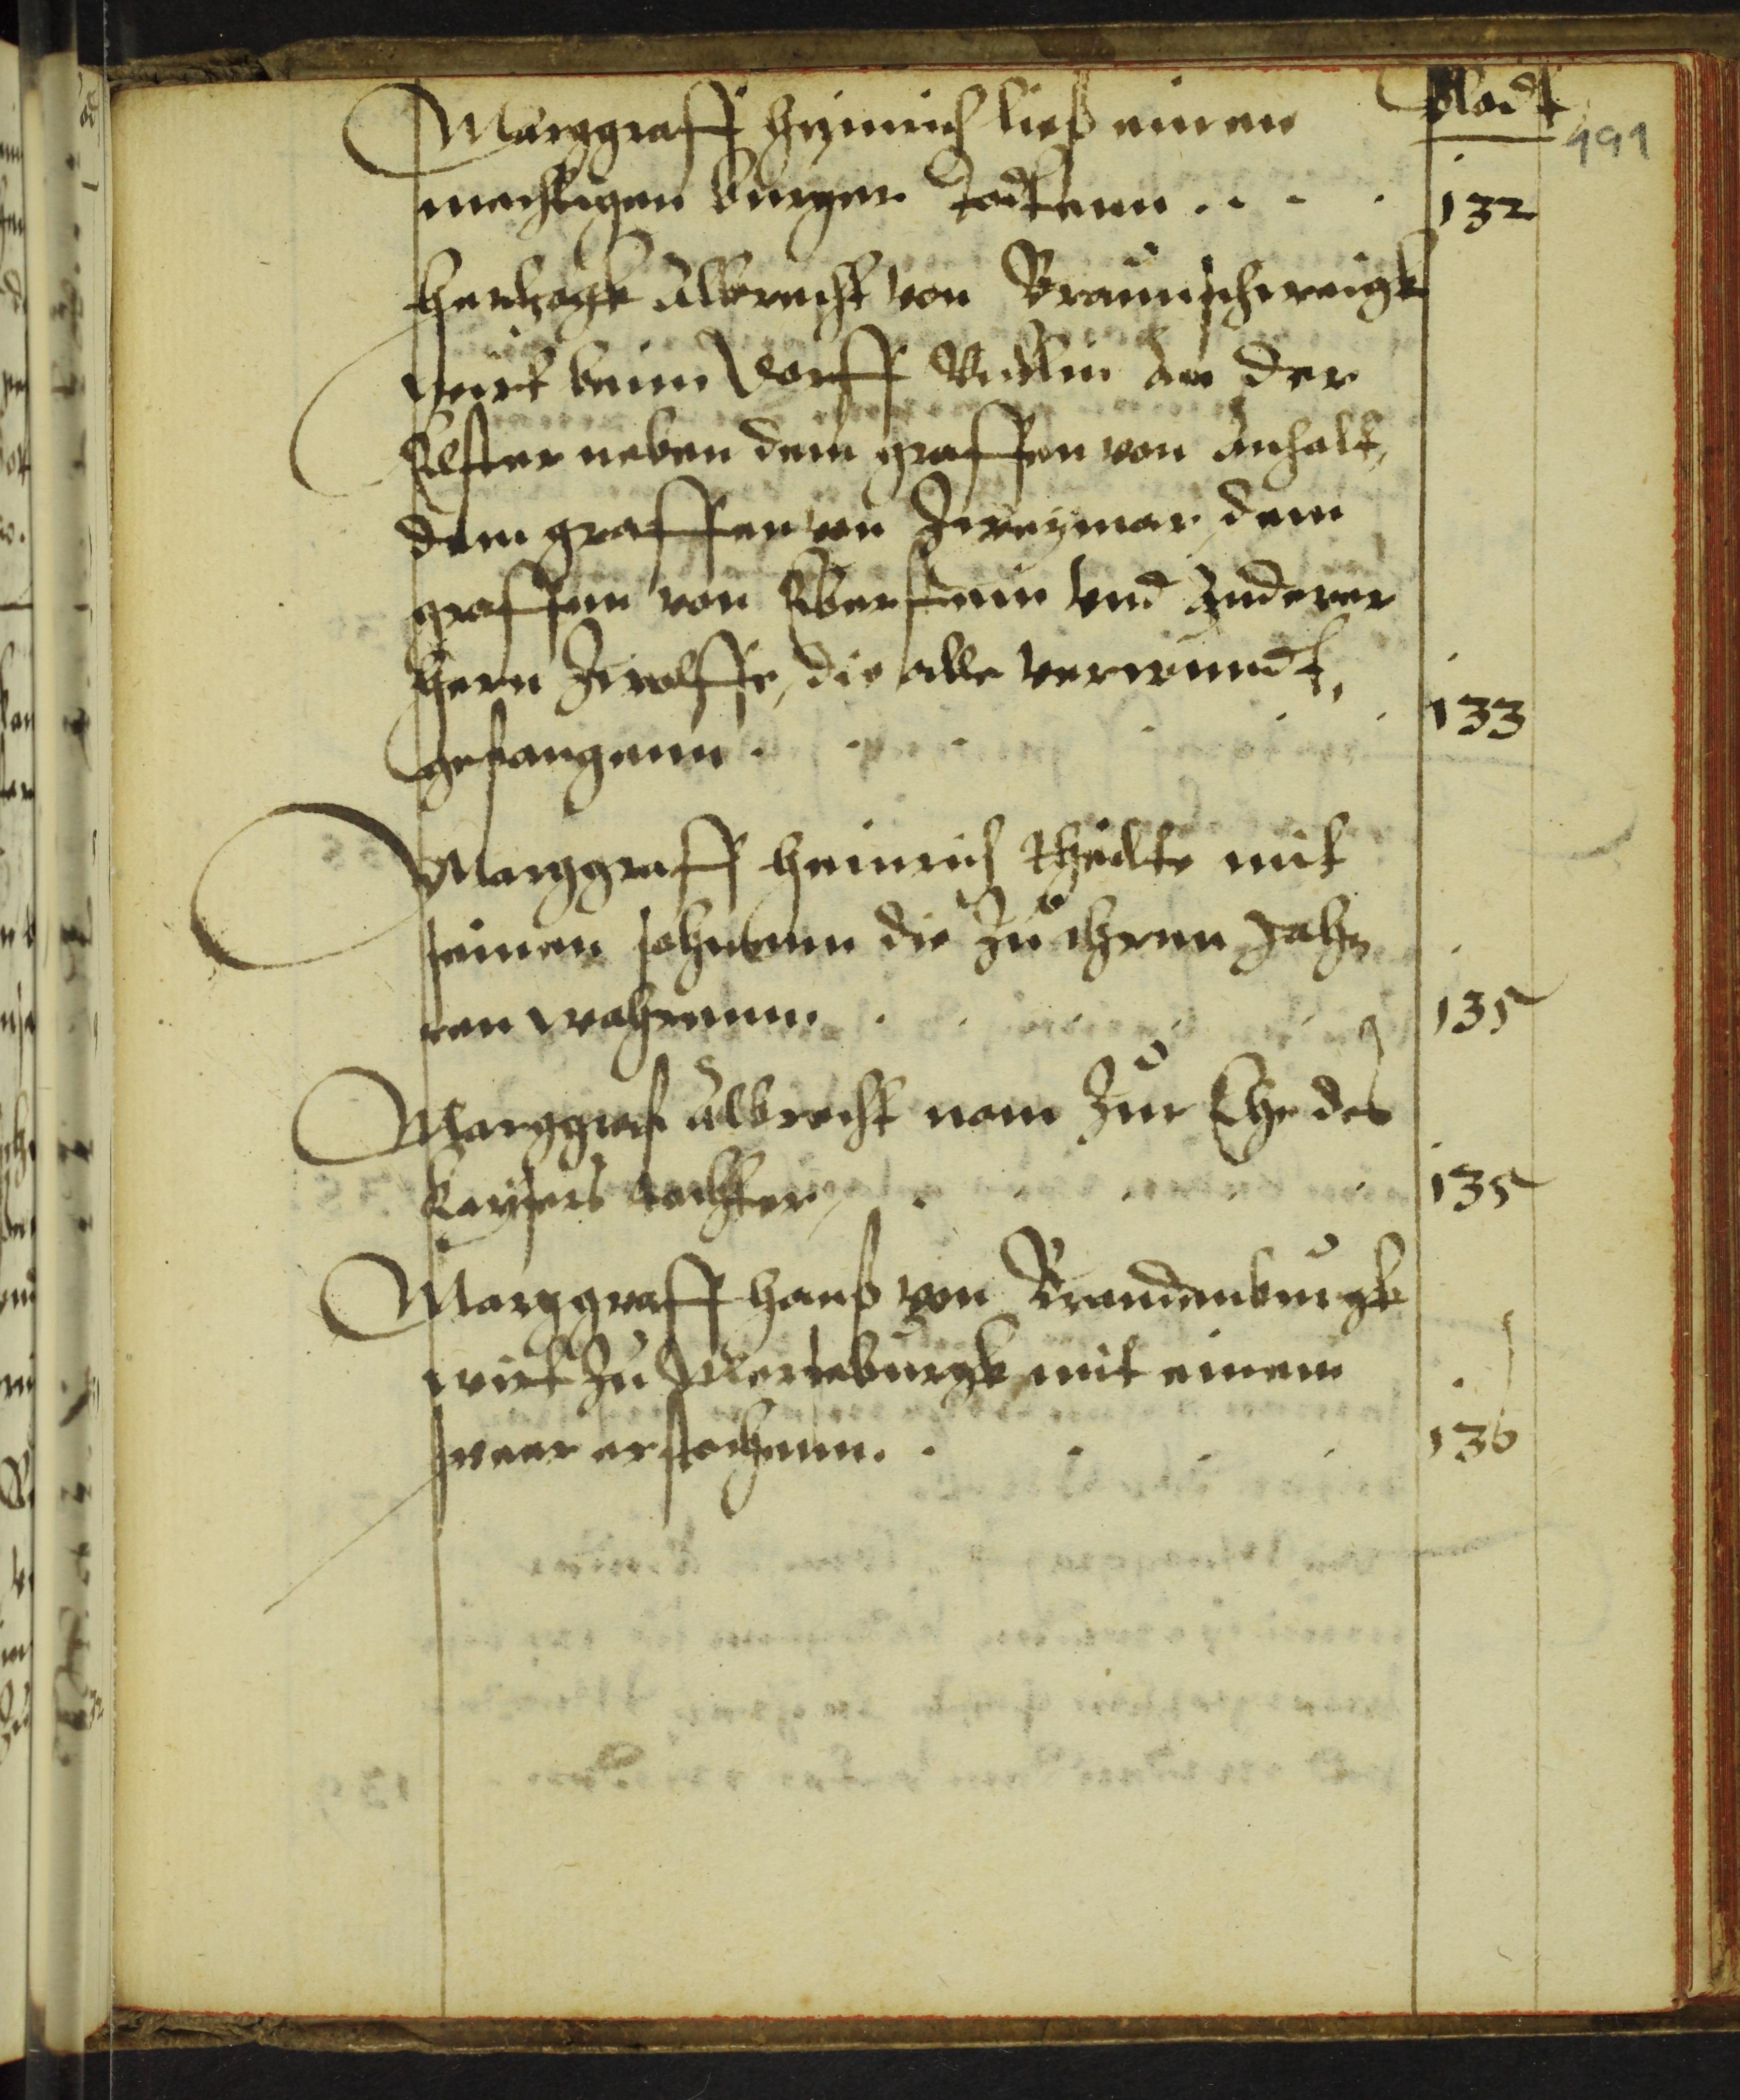 Bladt
491
Marggraff Heinrich ließ einen
mechtigen burger todtenn . . . . 132
Hertzogk Albrecht von Braunschweigk
wirt beim dorff an der
Elster neben dem graffen von Anhalt,
dem graffen von Zweymar, dem
graffen von Eberstein vnd anderer
Hern Zwolffe, die alle verwundt,
gefangenn . . . . . 133
Marggraff Heinrich theilte mit
seinen sohnenn die zu ihren Jah-
ren wahrenn . . . . . 135
Marggraf Albrecht nam zur Ehe des
Kaysers tochter, . . . . . 135
Marggraff Hanß von Brandenburgk
wirt zu Merseburgk mit einem
speer erstochenn . . . . 136